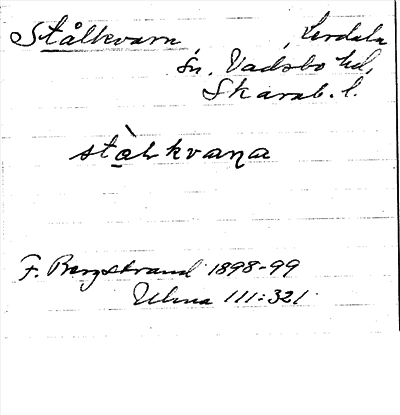 Stålkvarn, Lerdala
sn. Vadsbo hd,
Skarab. l.
stålkvana
F. Bergstrand 1898-99
Ulma 111:321